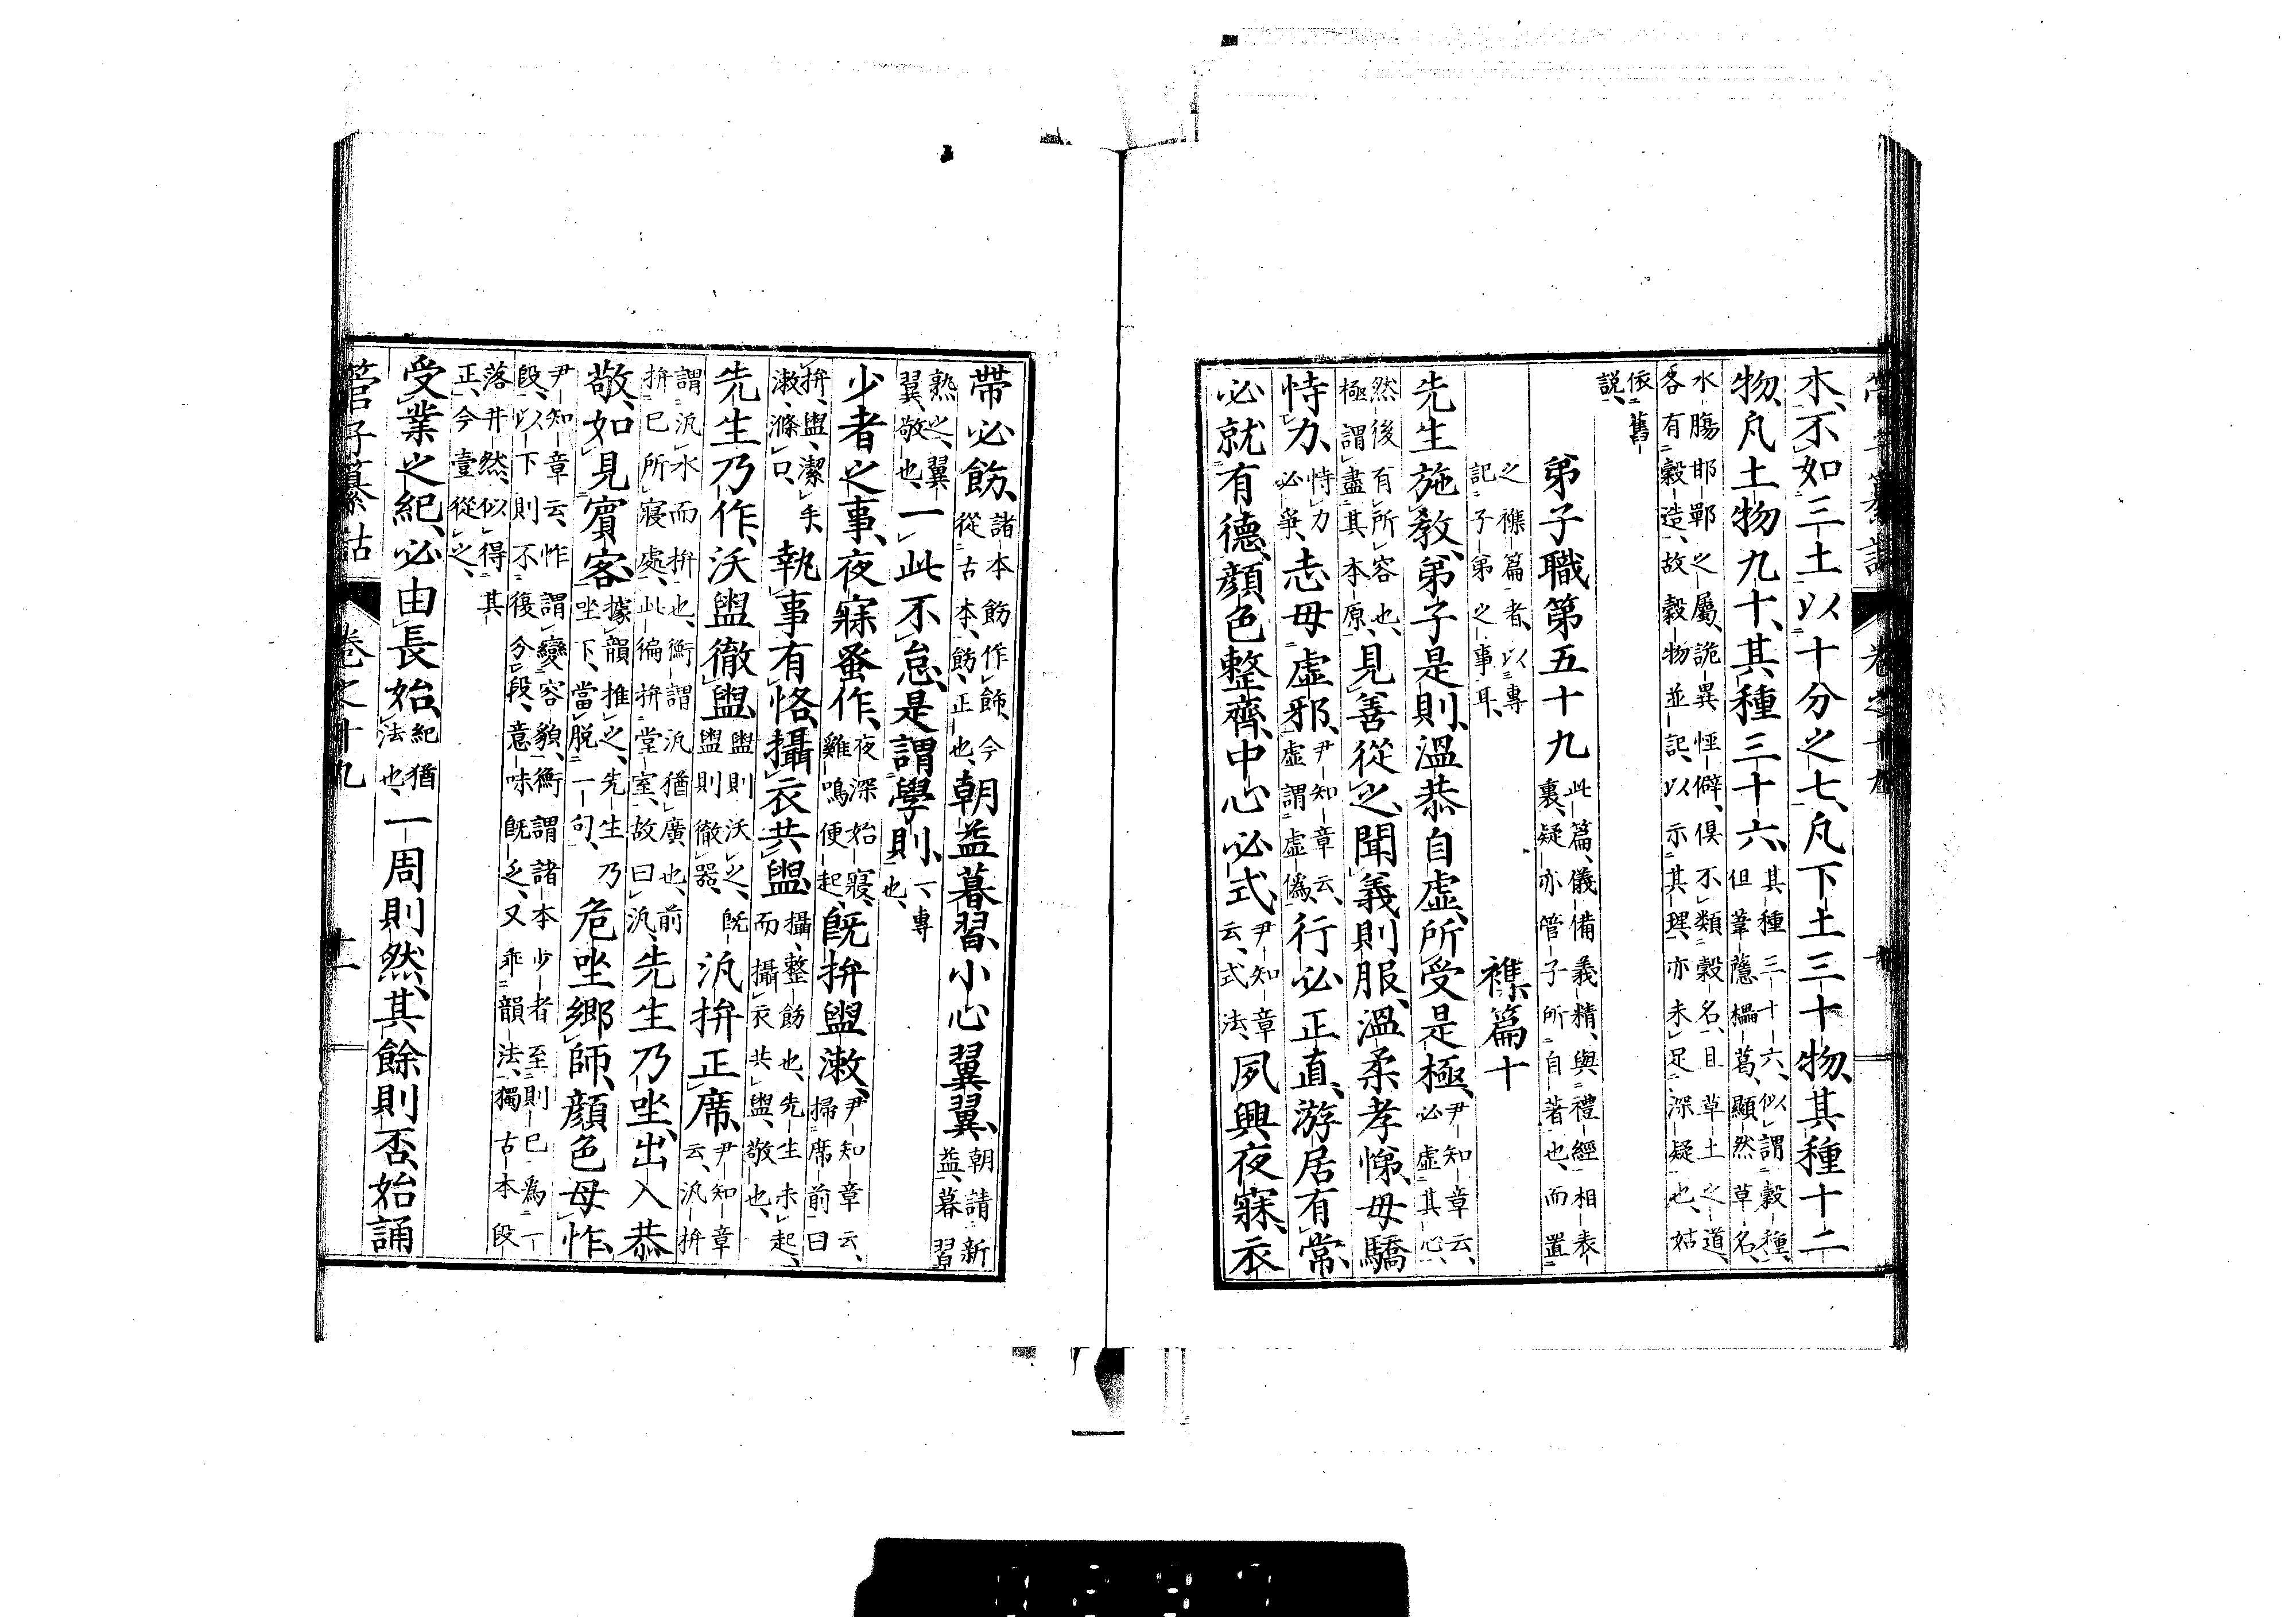 木、不如三土以十分之七、凡下土三十物、其種十二
物、凡土物九十、其種三十六、其種三十六、似謂穀種、但葦藘櫑葛、顯然草名、
水腸邯鄲之屬、詭異怪僻、俱不類穀名、且草土之道、各有穀造、故穀物並記、以示其理、亦未足深疑也、姑
依舊說、
弟子職第五十九 此篇、儀備義精、與禮經相表裏、疑亦管子所自著也、而置
之襍篇者、以專記子弟之事耳、 襍篇十
先生施教、弟子是則、溫恭自虛、所受是極、尹知章云、必虛其心、
然後有所容也、極謂盡其本原、見善從之、聞義則服、溫柔孝悌、毋驕
恃力、恃力必爭、志毋虛邪、尹知章云、虛謂虛僞、行必正直、游居有常、
必就有德、顔色整齊、中心必式、尹知章云、式法、夙興夜寐、衣
帶必飭、諸本飭作飾、今從古本、飭、正也、朝益暮習、小心翼翼、朝請新益、暮習
熟之、翼翼、敬也、一此不怠、是謂學則、一、專也、
少者之事、夜寐蚤作、夜深始寢、雞鳴便起、旣拚盥漱、尹知章云、掃席前曰
拚、盥、潔手、漱、滌口、執事有恪、攝衣共盥、攝、整飭也、先生未起、而攝衣共盥、敬也、
先生乃作、沃盥徹盥、盥則沃之、旣盥則徹器、汎拚正席、尹知章云、汎拚
謂汎水而拚也、衡謂汎猶廣也、前拚已所寢處、此徧拚堂室、故曰汎、先生乃坐、出入恭
敬、如見賓客、據韻推之、先生乃坐下、當脫一句、危坐鄉師、顔色毋怍、
尹知章云、怍謂變容貌、衡謂諸本少者至則已爲一段、以下則不復分段、意味旣乏、又乖韻法、獨古本段
落井然、似得其正、今壹從之、
受業之紀、必由長始、紀猶法也、一周則然、其餘則否、始誦
管子纂詁 卷之十九